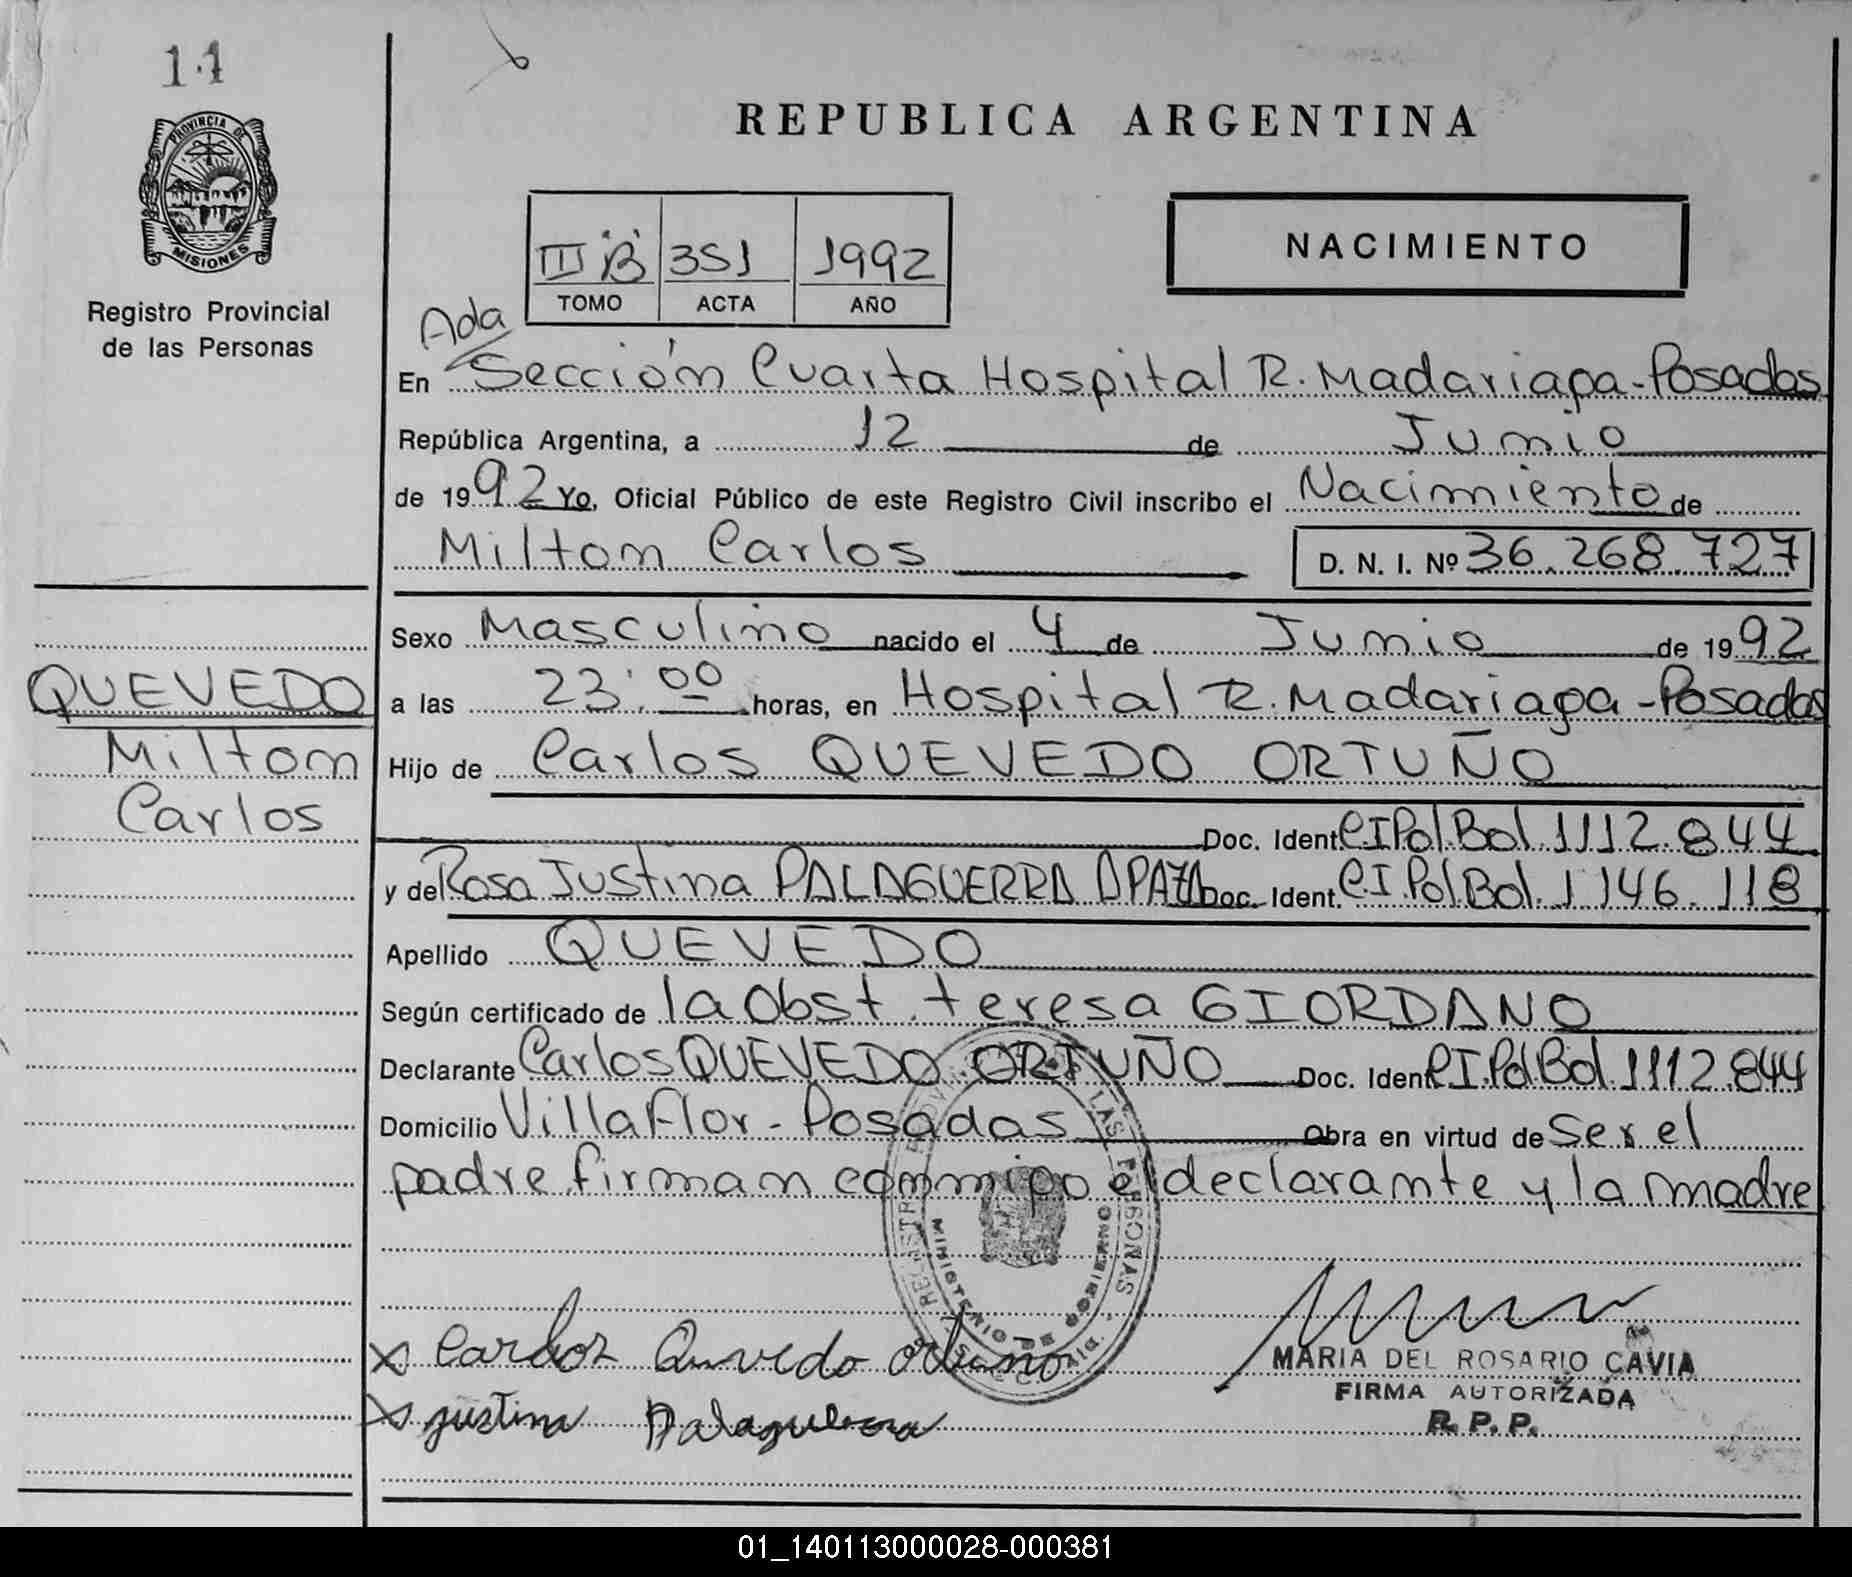 11
PROVINCIA DE
MISIONES
Registro Provincial
de las Personas
QUEVEDO
Miltom
Carlos
REPUBLICA ARGENTINA
III "B" 351 1992
TOMO ACTA AÑO
NACIMIENTO
Ada
En Sección Cuarta Hospital R. Madariaga - Posadas
República Argentina, a 12 de Junio
de 1992 Yo, Oficial Público de este Registro Civil inscribo el Nacimiento de
Miltom Carlos D. N. I. Nº 36.268.727
Sexo Masculino nacido el 4 de Junio de 1992
a las 23:00 horas, en Hospital R. Madariaga - Posadas
Hijo de Carlos QUEVEDO ORTUÑO
Doc. Ident. C.I.Pol.Bol. 1112.844
y de Rosa Justina PALAGUERRA APAZA Doc. Ident. C.I.Pol.Bol. 1146.118
Apellido QUEVEDO
Según certificado de la Obst. teresa GIORDANO
Declarante Carlos QUEVEDO ORTUÑO Doc. Ident. C.I.Pol.Bol 1112.844
Domicilio Villa Flor - Posadas Obra en virtud de Ser el
padre firman conmigo el declarante y la madre
LAS PERSONAS
MINISTERIO DE GOBIERNO
X Carlos Quevedo Ortuño
X justina Palaguerra
MARIA DEL ROSARIO CAVIA
FIRMA AUTORIZADA
R. P. P.
01_140113000028-000381